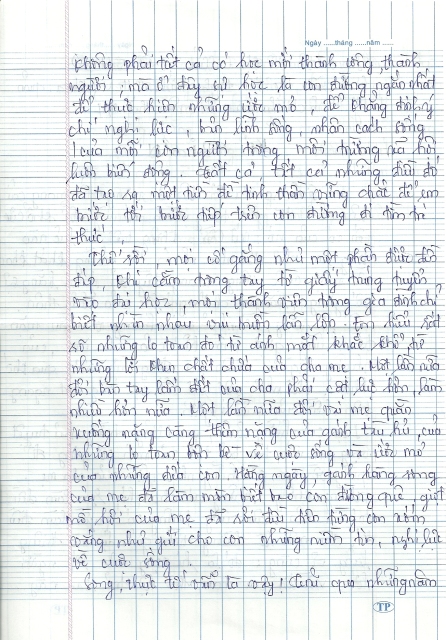 Ngày ..... tháng ..... năm .....
không phải tất cả có học mới thành công, thành
người, mà ở đây sự học là con đường ngắn nhất
để thực hiện những ước mơ, để khẳng định ý
chí nghị lực, bản lĩnh sống, nhân cách sống
của mỗi con người trong môi trường xã hội
luôn biến động. Tất cả, tất cả những điều đó
đã tạo ra một tiền đề tinh thần vững chắc để em
bước tới bước tiếp trên con đường đi tìm tri
thức.
Thế rồi, mọi cố gắng như một phần được đền
đáp. Khi cầm trong tay tờ giấy trúng tuyển
vào đại học, mọi thành viên trong gia đình chỉ
biết nhìn nhau vui buồn lẫn lộn. Em hiểu rất
rõ những lo toan đó từ ánh mắt khắc khổ, từ
những lời khen chất chứa của cha mẹ. Một lần nữa
đôi bàn tay của cha phải cật lực hơn, làm
nhiều hơn nữa. Một lần nữa đôi vai mẹ quằn
xuống nặng càng thêm nặng của gánh tàu hủ, của
những lo toan bộn bề về cuộc sống và ước mơ
của những đứa con. Hằng ngày, gánh hàng rong
của mẹ đã làm mòn biết bao con đường quê, giọt
mồ hôi của mẹ đã rơi đều trên từng con xóm
vắng như gửi cho con những niềm tin, nghị lực
về cuộc sống.
Song, thực tế vẫn là vậy! Cũng qua những năm
TP